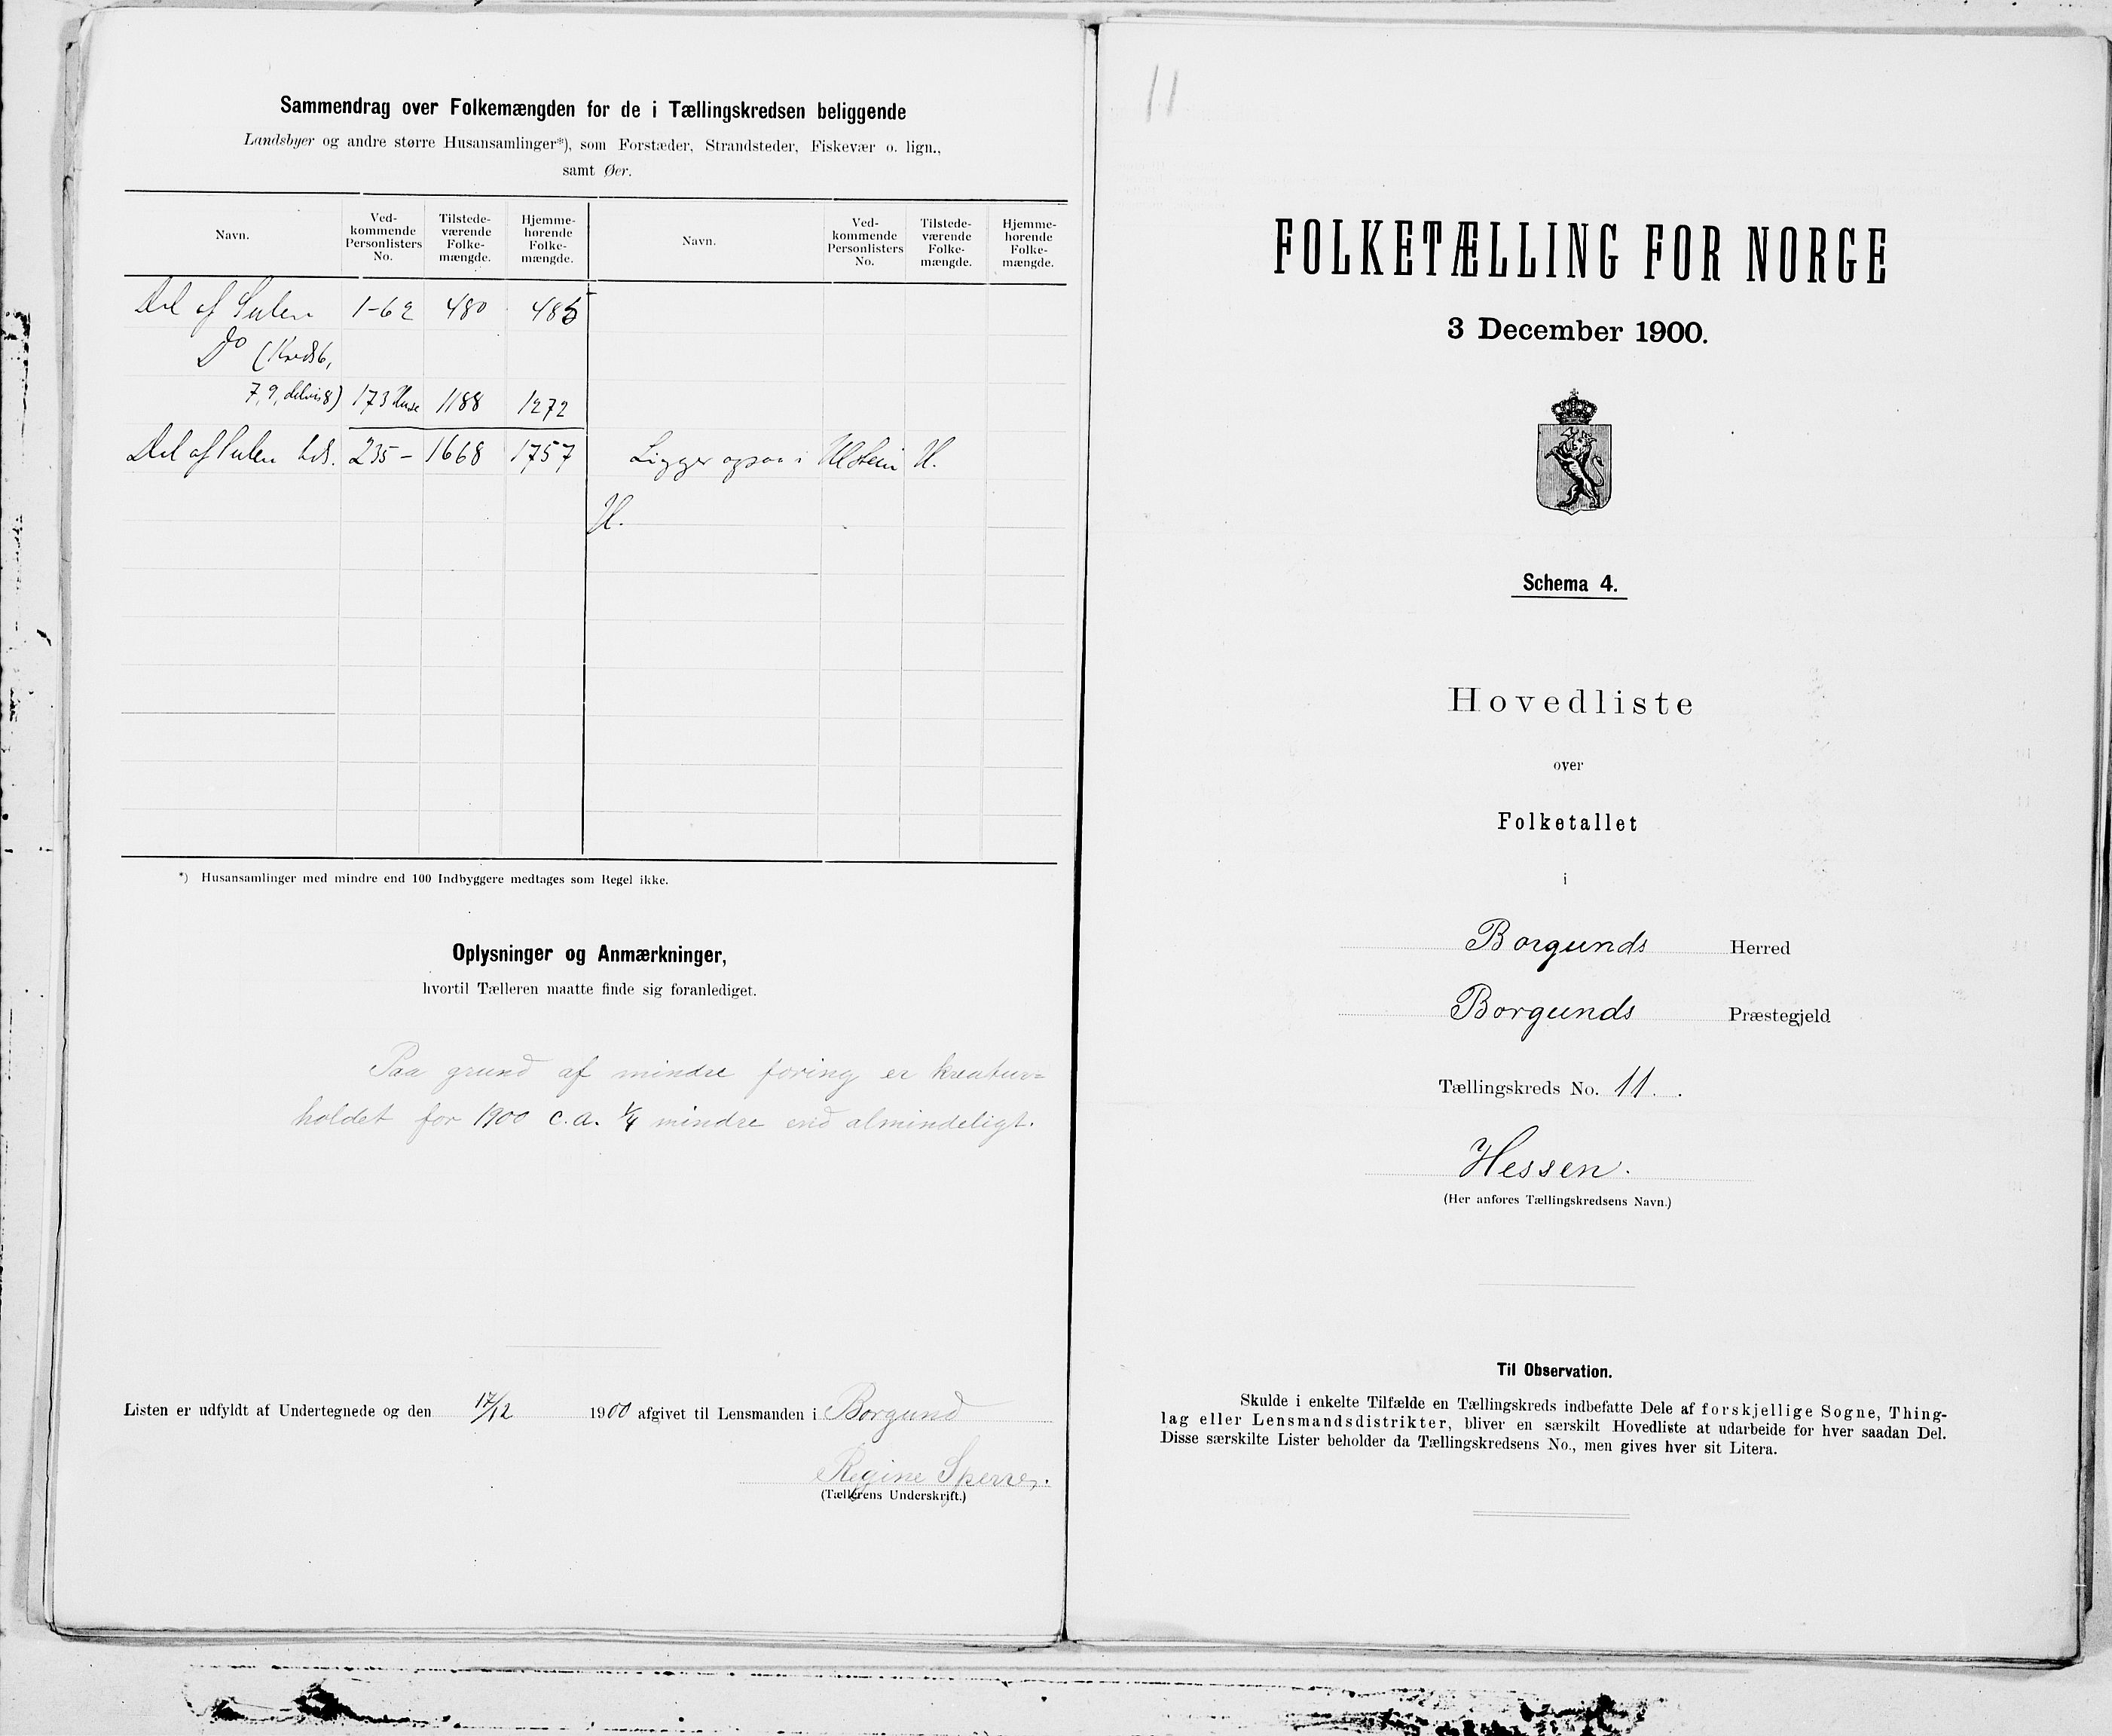 Sammendrag over Folkemængden for de i Tællingskredsen beliggende
Landsbyer og andre større Husansamlinger*), som Forstæder, Strandsteder, Fiskevær o. lign.,
samt Øer.
Navn. Ved-kommende Personlisters No. Tilstede-værende Folke-mængde. Hjemme-hørende Folke-mængde. Navn. Ved-kommende Personlisters No. Tilstede-værende Folke-mængde. Hjemme-hørende Folke-mængde.
Del af Sulen 1-62 480 485
Do (Kreds 6,
7, 9, delvis 8) 173 Huse 1188 1272
Del af Sulen 235 - 1668 1757 Ligger ogsaa i Ulstein H.
H.
*) Husansamlinger med mindre end 100 Indbyggere medtages som Regel ikke.
Oplysninger og Anmærkninger,
hvortil Tælleren maatte finde sig foranlediget.
Paa grund af mindre foring er kreatur=
holdet for 1900 c.a. 1/4 mindre end almindeligt.
Listen er udfyldt af Undertegnede og den 17/12 1900 afgivet til Lensmanden i Borgund
Regine Sperre.
(Tællerens Underskrift.)
11
FOLKETÆLLING FOR NORGE
3 December 1900.
Schema 4.
Hovedliste
over
Folketallet
i
Borgunds Herred
Borgunds Præstegjeld
Tællingskreds No. 11.
Hessen.
(Her anføres Tællingskredsens Navn.)
Til Observation.
Skulde i enkelte Tilfælde en Tællingskreds indbefatte Dele af forskjellige Sogne, Thing-
lag eller Lensmandsdistrikter, bliver en særskilt Hovedliste at udarbeide for hver saadan Del.
Disse særskilte Lister beholder da Tællingskredsens No., men gives hver sit Litera.